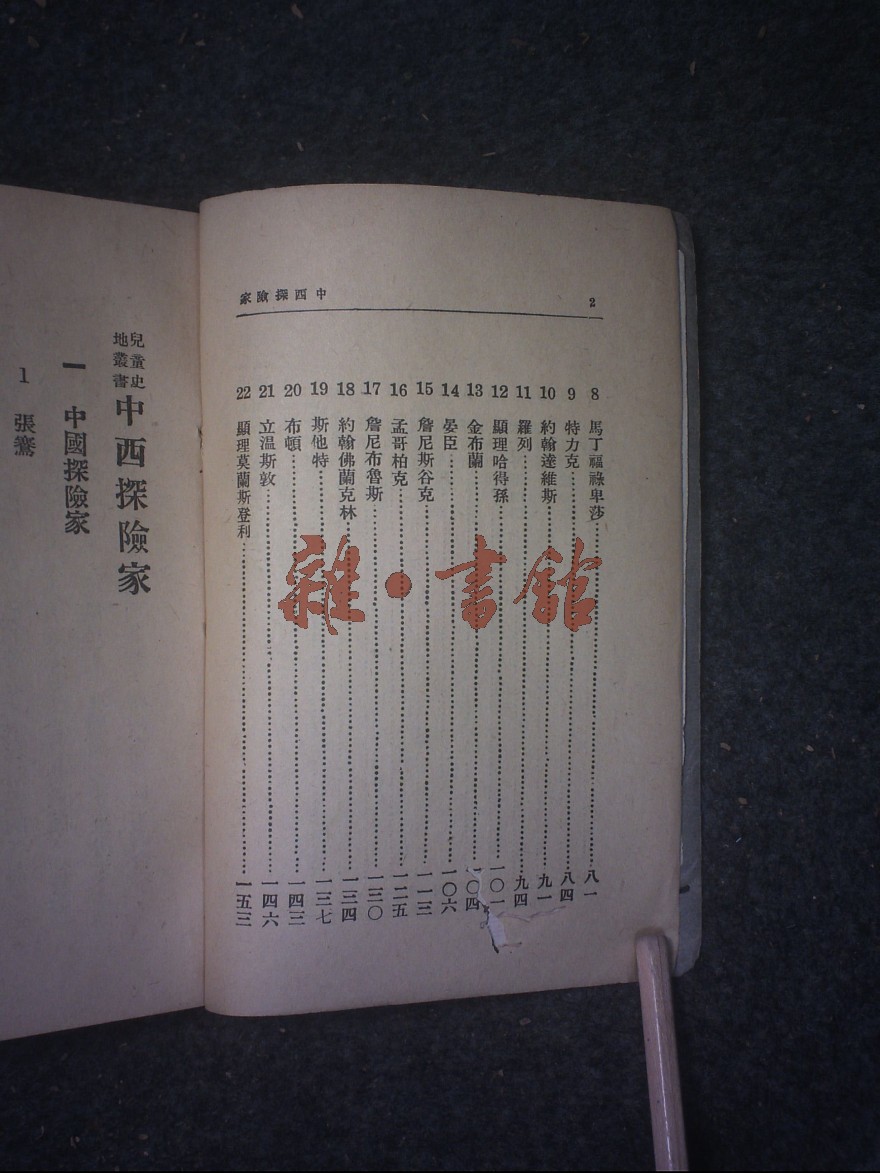 中西探險家
2
8 馬丁福祿卑莎 八一
9 特力克 八四
10 約翰達維斯 九一
11 羅列 九四
12 顯理哈得孫 一〇一
13 金布蘭 一〇四
14 晏臣 一〇六
15 詹尼斯谷克 一一三
16 孟哥柏克 一二五
17 詹尼布魯斯 一三〇
18 約翰佛蘭克林 一三四
19 斯他特 一三七
20 布頓 一四三
21 立温斯敦 一四六
22 顯理莫蘭斯登利 一五三
兒童史
地叢書
中西探險家
一 中國探險家
1 張騫
雜·書館